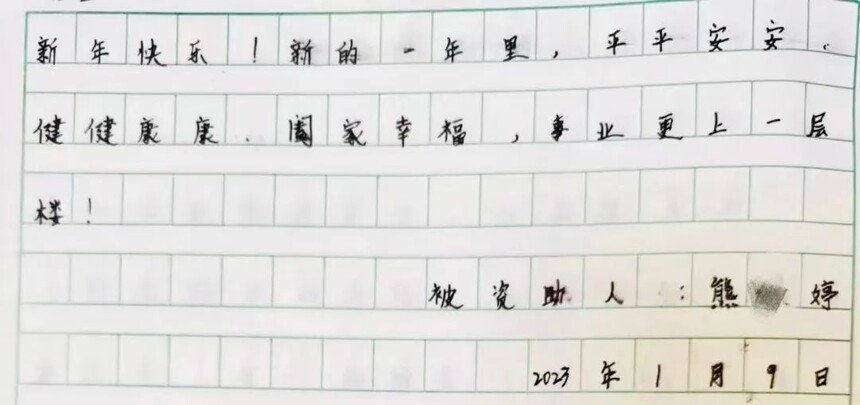 新年快乐！新的一年里，平平安安、
健健康康、阖家幸福，事业更上一层
楼！
被资助人：熊 婷
2023年1月9日